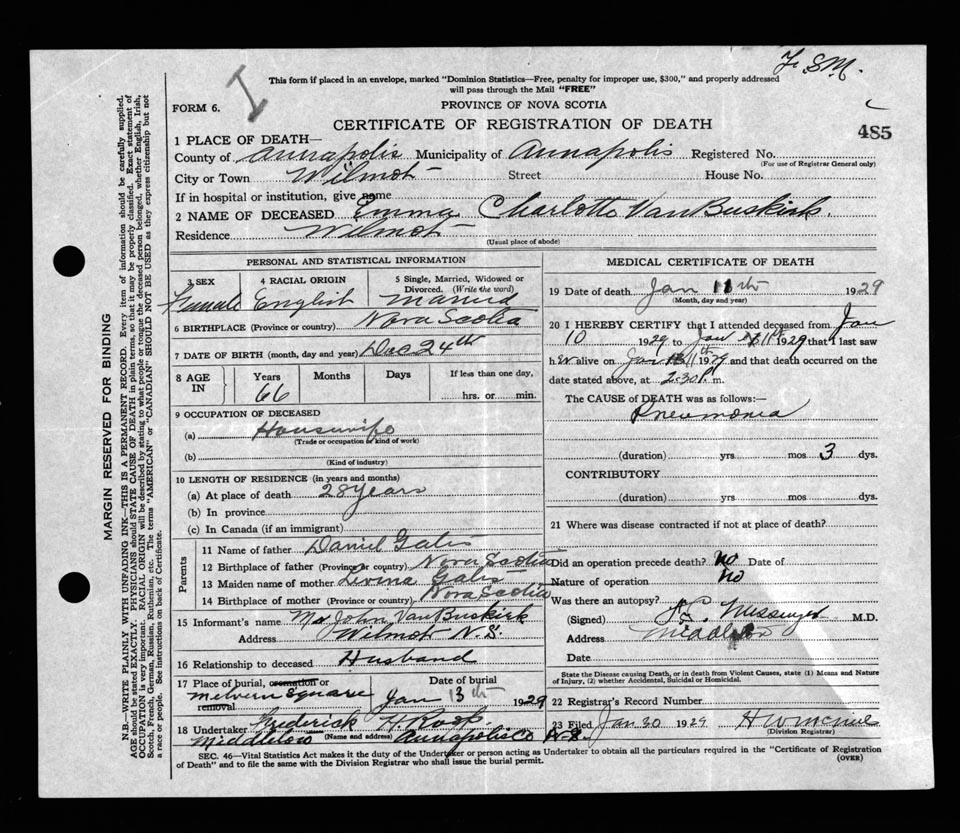 F. S.M.
This form if placed in an envelope, marked "Dominion Statistics—Free, penalty for improper use, $300," and properly addressed
will pass through the Mail "FREE"
FORM 6.
PROVINCE OF NOVA SCOTIA
CERTIFICATE OF REGISTRATION OF DEATH
485
1 PLACE OF DEATH—
County of Annapolis Municipality of Annapolis Registered No.
(For use of Registrar General only)
City or Town Wilmot Street House No.
If in hospital or institution, give name
2 NAME OF DECEASED Emma Charlotte VanBuskirk.
Residence Wilmot
(Usual place of abode)
PERSONAL AND STATISTICAL INFORMATION
3 SEX
Female
4 RACIAL ORIGIN
English
5 Single, Married, Widowed or
Divorced. (Write the word)
Married
6 BIRTHPLACE (Province or country) Nova Scotia
7 DATE OF BIRTH (month, day and year) Dec 24th
8 AGE IN
Years Months Days If less than one day,
66 hrs. or min.
9 OCCUPATION OF DECEASED
(a) Housewife
(Trade or occupation or kind of work)
(b)
(Kind of industry)
10 LENGTH OF RESIDENCE (in years and months)
(a) At place of death 28 years
(b) In province
(c) In Canada (if an immigrant)
Parents
11 Name of father Daniel Gates
12 Birthplace of father (Province or country) Nova Scotia
13 Maiden name of mother Levina Gates
14 Birthplace of mother (Province or country) Nova Scotia
15 Informant's name Mr John VanBuskirk
Address Wilmot N.S.
16 Relationship to deceased Husband
17 Place of burial, cremation or
removal Melvern Square
Date of burial
Jan 13th 1929
18 Undertaker Frederick H. Roop
(Name and address)
Middleton Annapolis Co N.S.
MEDICAL CERTIFICATE OF DEATH
19 Date of death Jan 11th 1929
(Month, day and year)
20 I HEREBY CERTIFY that I attended deceased from Jan
10 1929 to Jan 11th 1929 that I last saw
h er alive on Jan 11th 1929 and that death occurred on
date stated above, at 2.30 P. m.
The CAUSE of DEATH was as follows:—
Pneumonia
(duration) yrs mos 3 dys.
CONTRIBUTORY
(duration) yrs mos dys.
21 Where was disease contracted if not at place of death?
Did an operation precede death? No Date of
Nature of operation No
Was there an autopsy?
(Signed) Messenger M.D.
Address Middleton
Date
State the Disease causing Death, or in death from Violent Causes, state (1) Means and Nature
of Injury, (2) whether Accidental, Suicidal or Homicidal.
22 Registrar's Record Number
23 Filed Jan 30 1929
(Division Registrar)
SEC. 46—Vital Statistics Act makes it the duty of the Undertaker or person acting as Undertaker to obtain all the particulars required in the "Certificate of Registration
of Death" and to file the same with the Division Registrar who shall issue the burial permit.
(OVER)
MARGIN RESERVED FOR BINDING
N.B.—WRITE PLAINLY WITH UNFADING INK—THIS IS A PERMANENT RECORD. Every item of information should be carefully supplied.
AGE should be stated EXACTLY. PHYSICIANS should STATE CAUSE OF DEATH in plain terms, so that it may be properly classified. Exact statement of
OCCUPATION is very important. RACIAL ORIGIN will be described by stating to what people or tongue the deceased person belonged, whether English, Irish,
Scotch, French, German, Russian, Ruthenian, etc. The terms "AMERICAN" or "CANADIAN" SHOULD NOT BE USED as they express citizenship but not
a race or people. See instructions on back of Certificate.